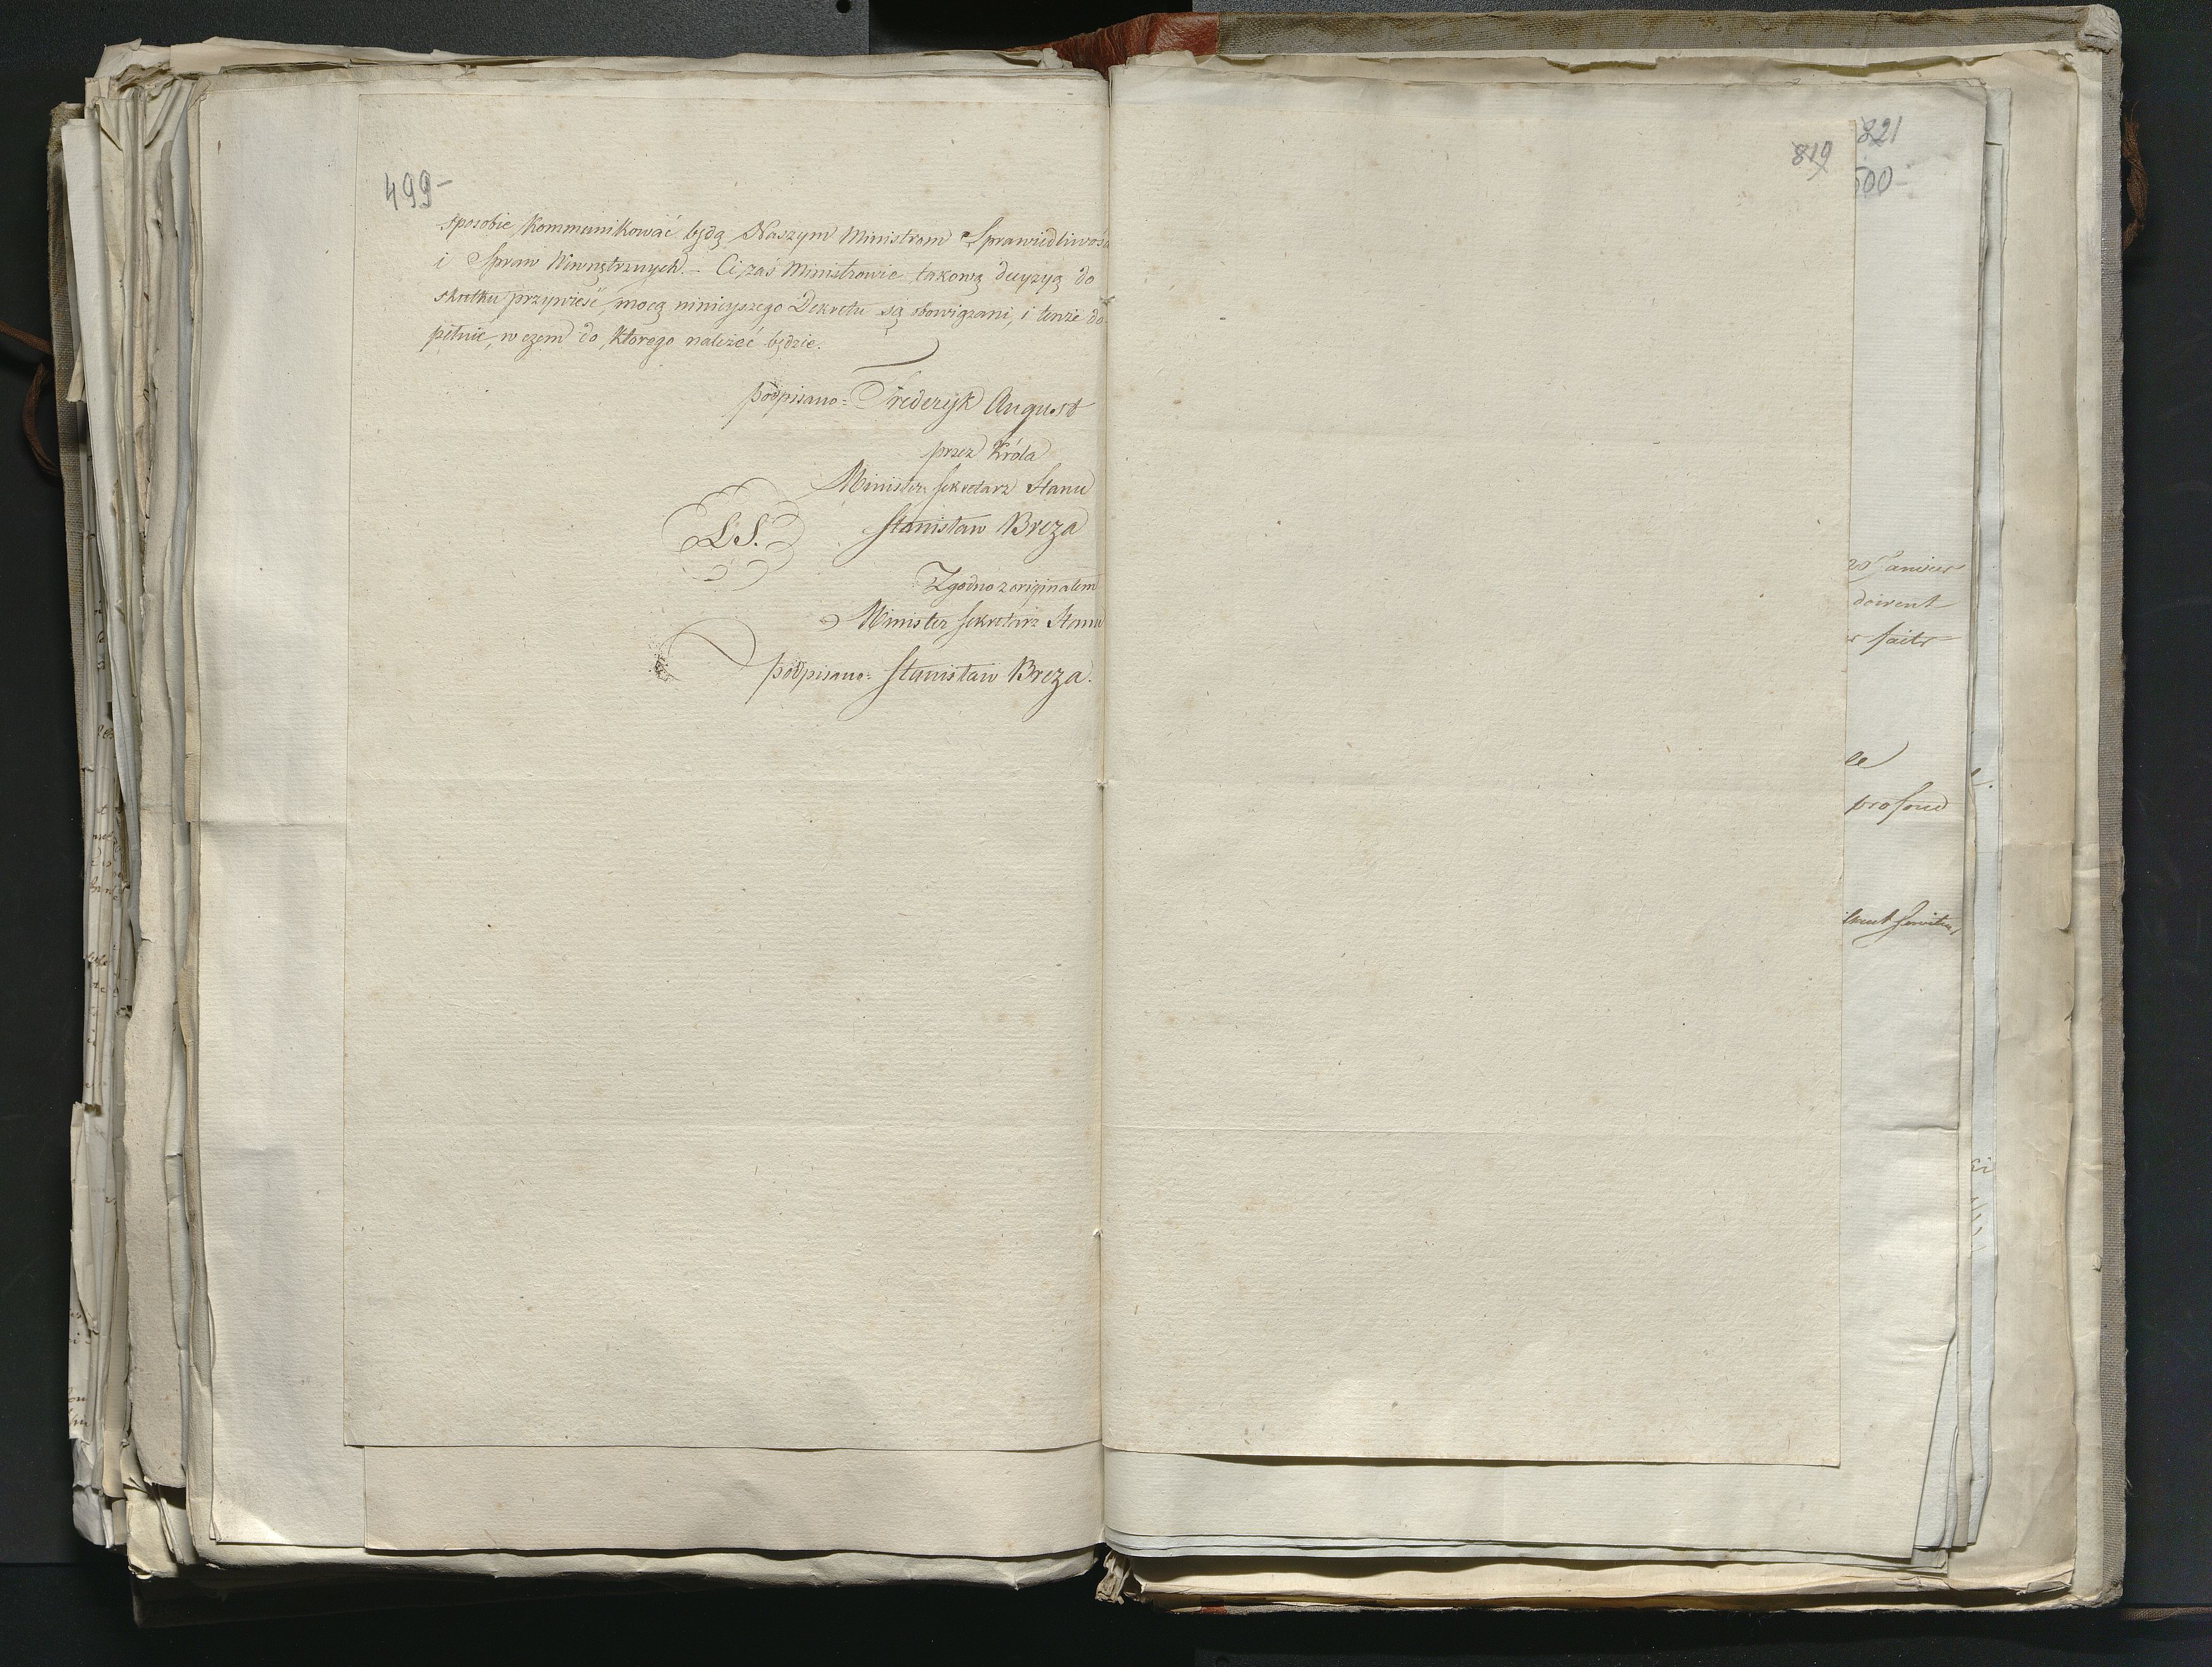 499-
sposobie kommunikować będą Naszym Ministrom Sprawiedliwości
i Spraw Wewnętrznych. - Ci zaś Ministrowie takową decyzyą do
skutku przywieść, mocą ninieyszego Dekretu są obowiązani, i tenże do-
pełnić, w czem do którego należeć będzie.
podpisano = Frederyk August
przez Króla
Minister Sekretarz Stanu
L.S. Stanisław Breza
Zgodno z originałem
Minister Sekretarz Stanu
podpisano = Stanisław Breza.
819
821
500-
doivent
faits
le
profond